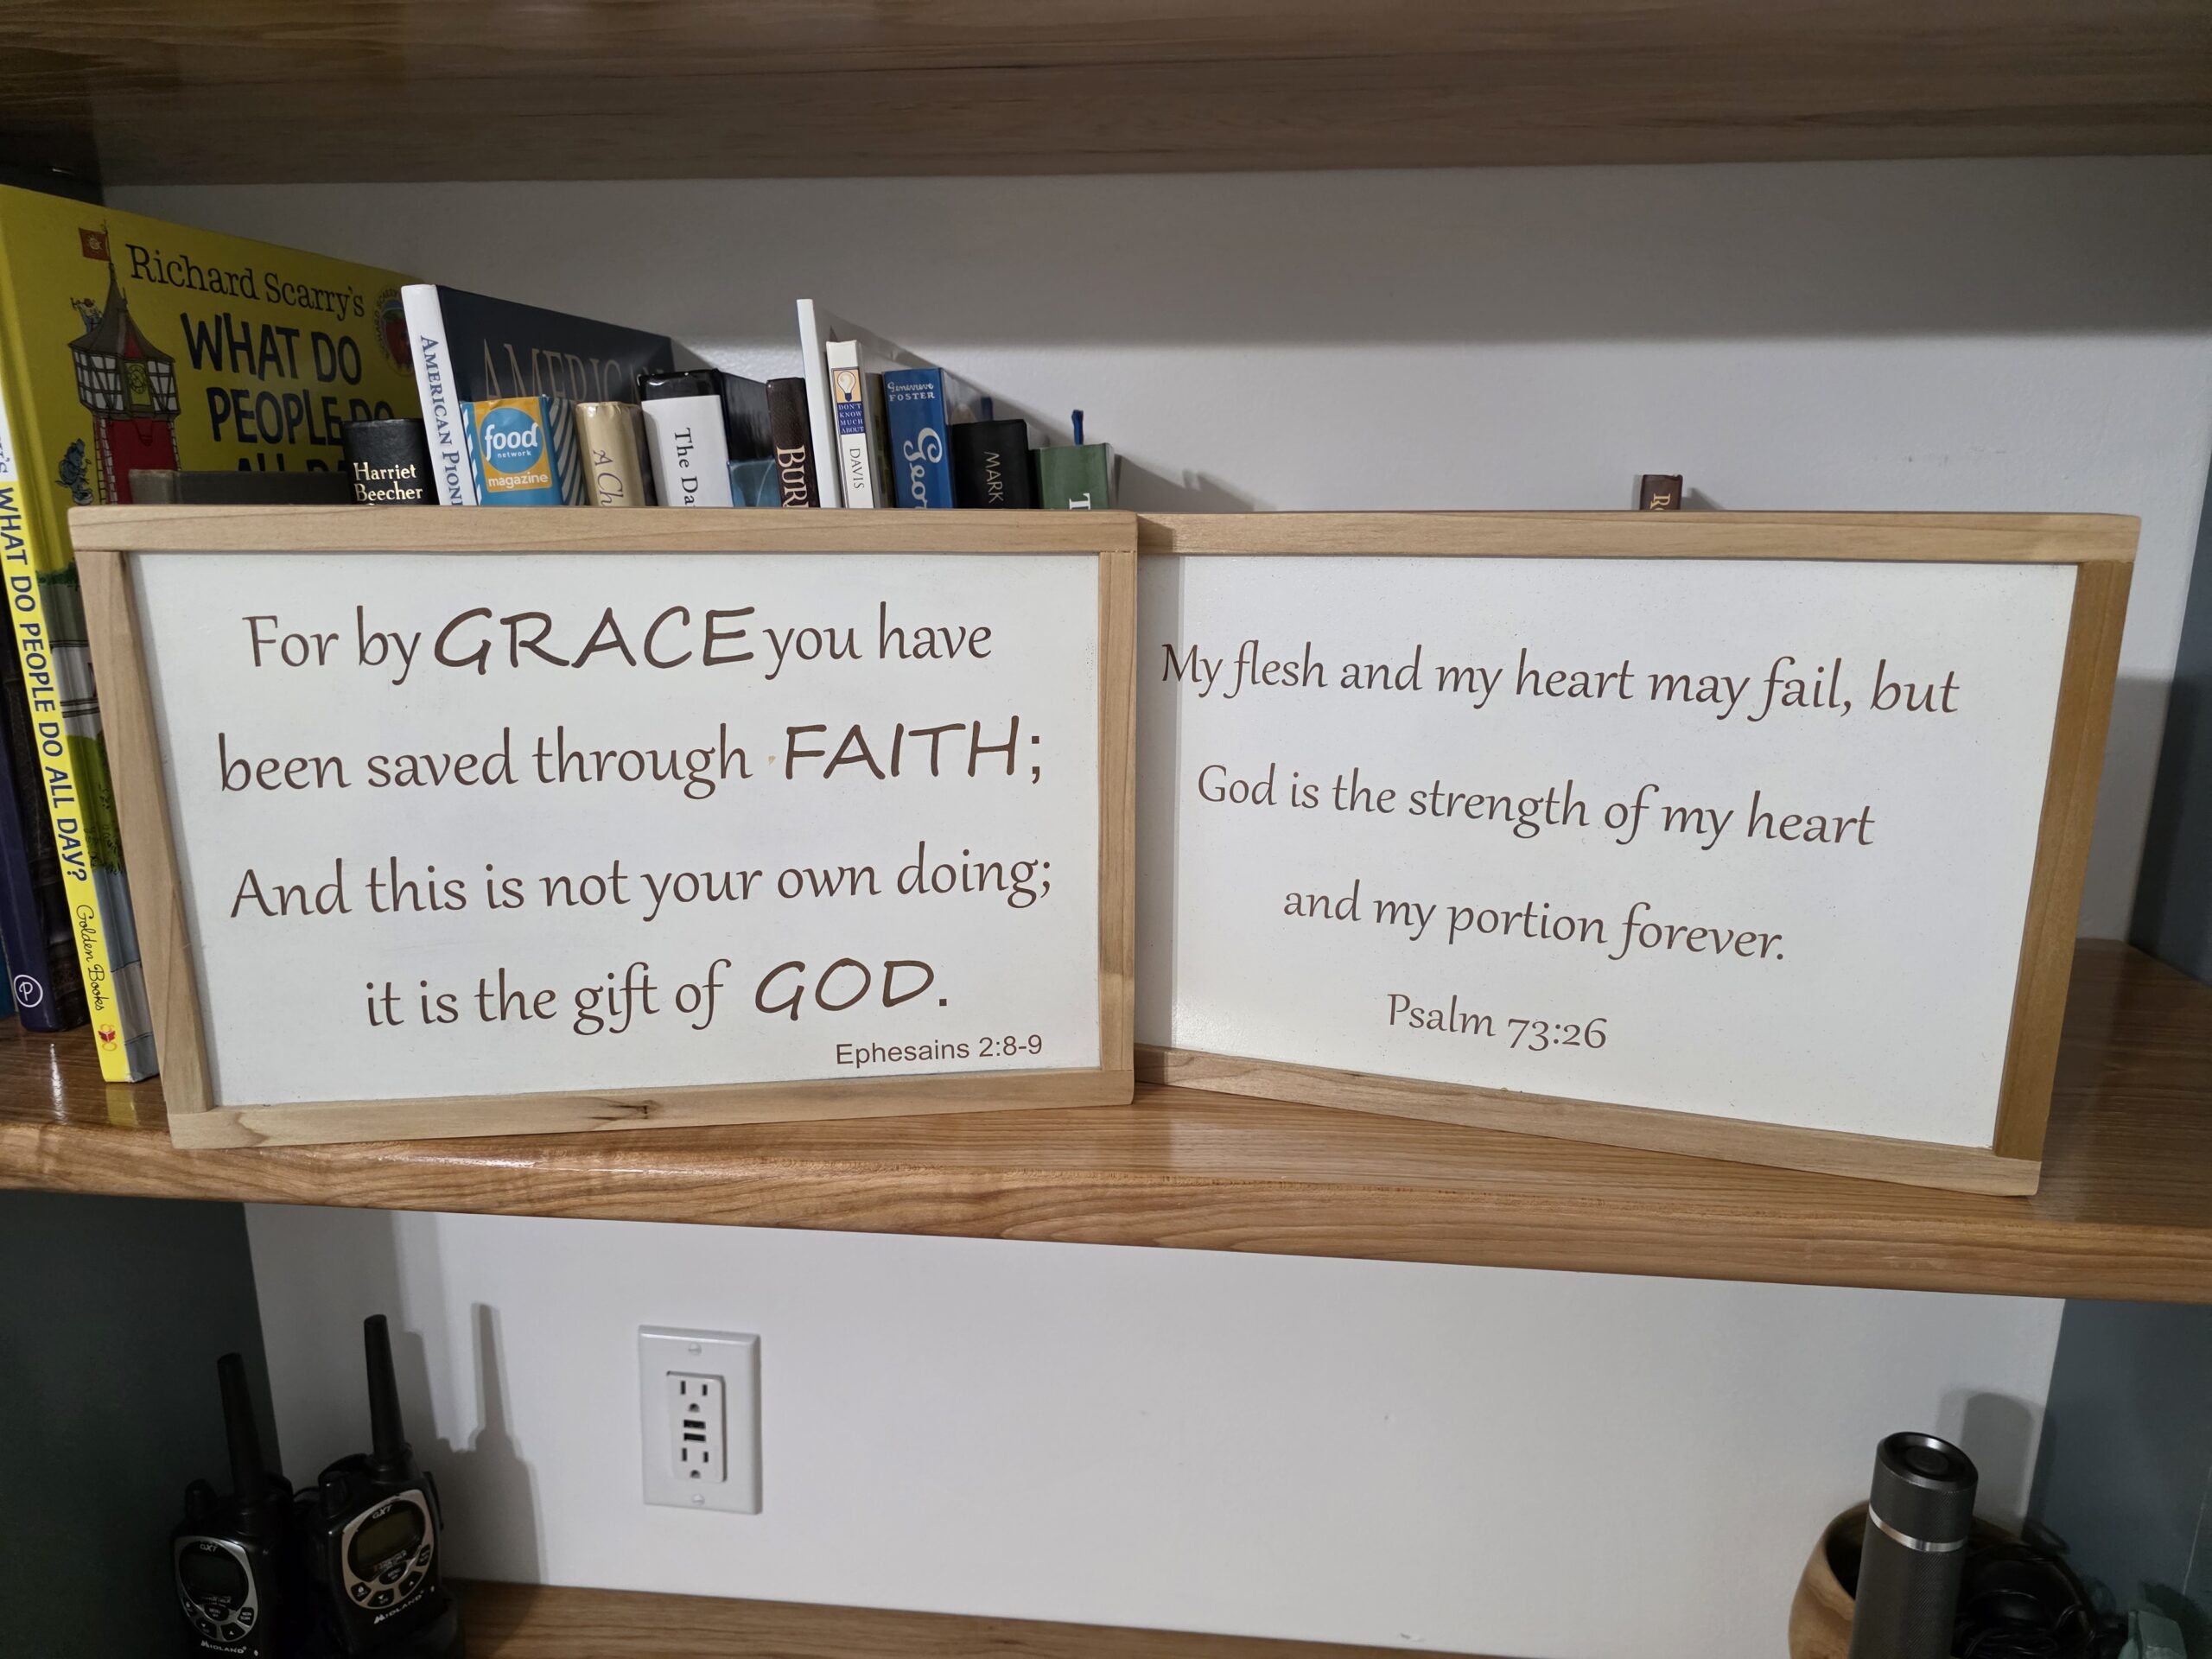 Richard Scarry's
WHAT DO
PEOPLE DO
WHAT DO PEOPLE DO ALL DAY?
Golden Books
P
Harriet
Beecher
AMERICAN
food
network
magazine
A
The
DON'T
KNOW
MUCH
ABOUT
DAVIS
Genevieve
FOSTER
MARK
For by GRACE you have
been saved through FAITH;
And this is not your own doing;
it is the gift of GOD.
Ephesains 2:8-9
My flesh and my heart may fail, but
God is the strength of my heart
and my portion forever.
Psalm 73:26
GXT
MIDLAND
GXT
MIDLAND